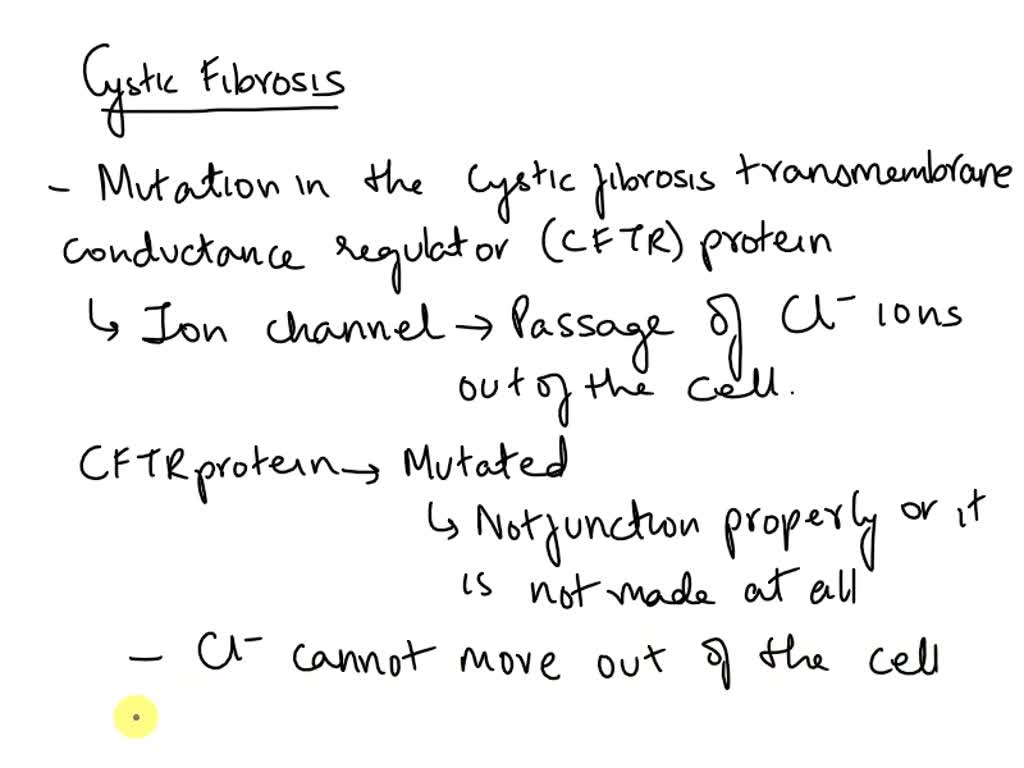 Cystic Fibrosis
- Mutation in the cystic fibrosis transmembrane
conductance regulator (CFTR) protein
↳ Ion channel → Passage of Cl⁻ ions
out of the cell.
CFTR protein → Mutated
↳ Not function properly or it
is not made at all
- Cl⁻ cannot move out of the cell